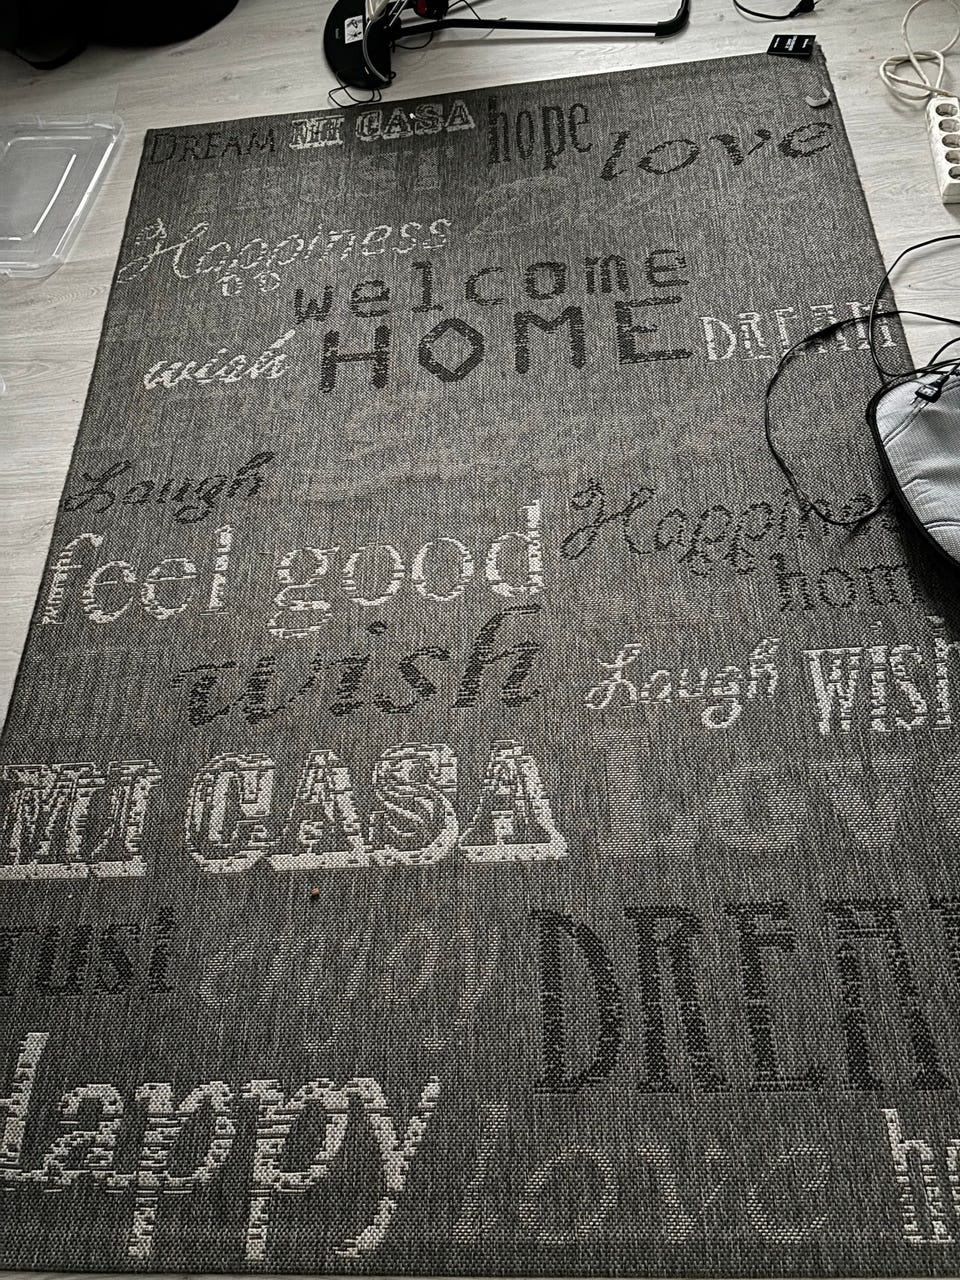 DREAM MI CASA hope love
TRUST
Happiness
welcome
wish HOME DREAM
Laugh
feel good Happines
hom
wish Laugh WISH
MI CASA Lov
rust enjoy DREAM
Happy love h